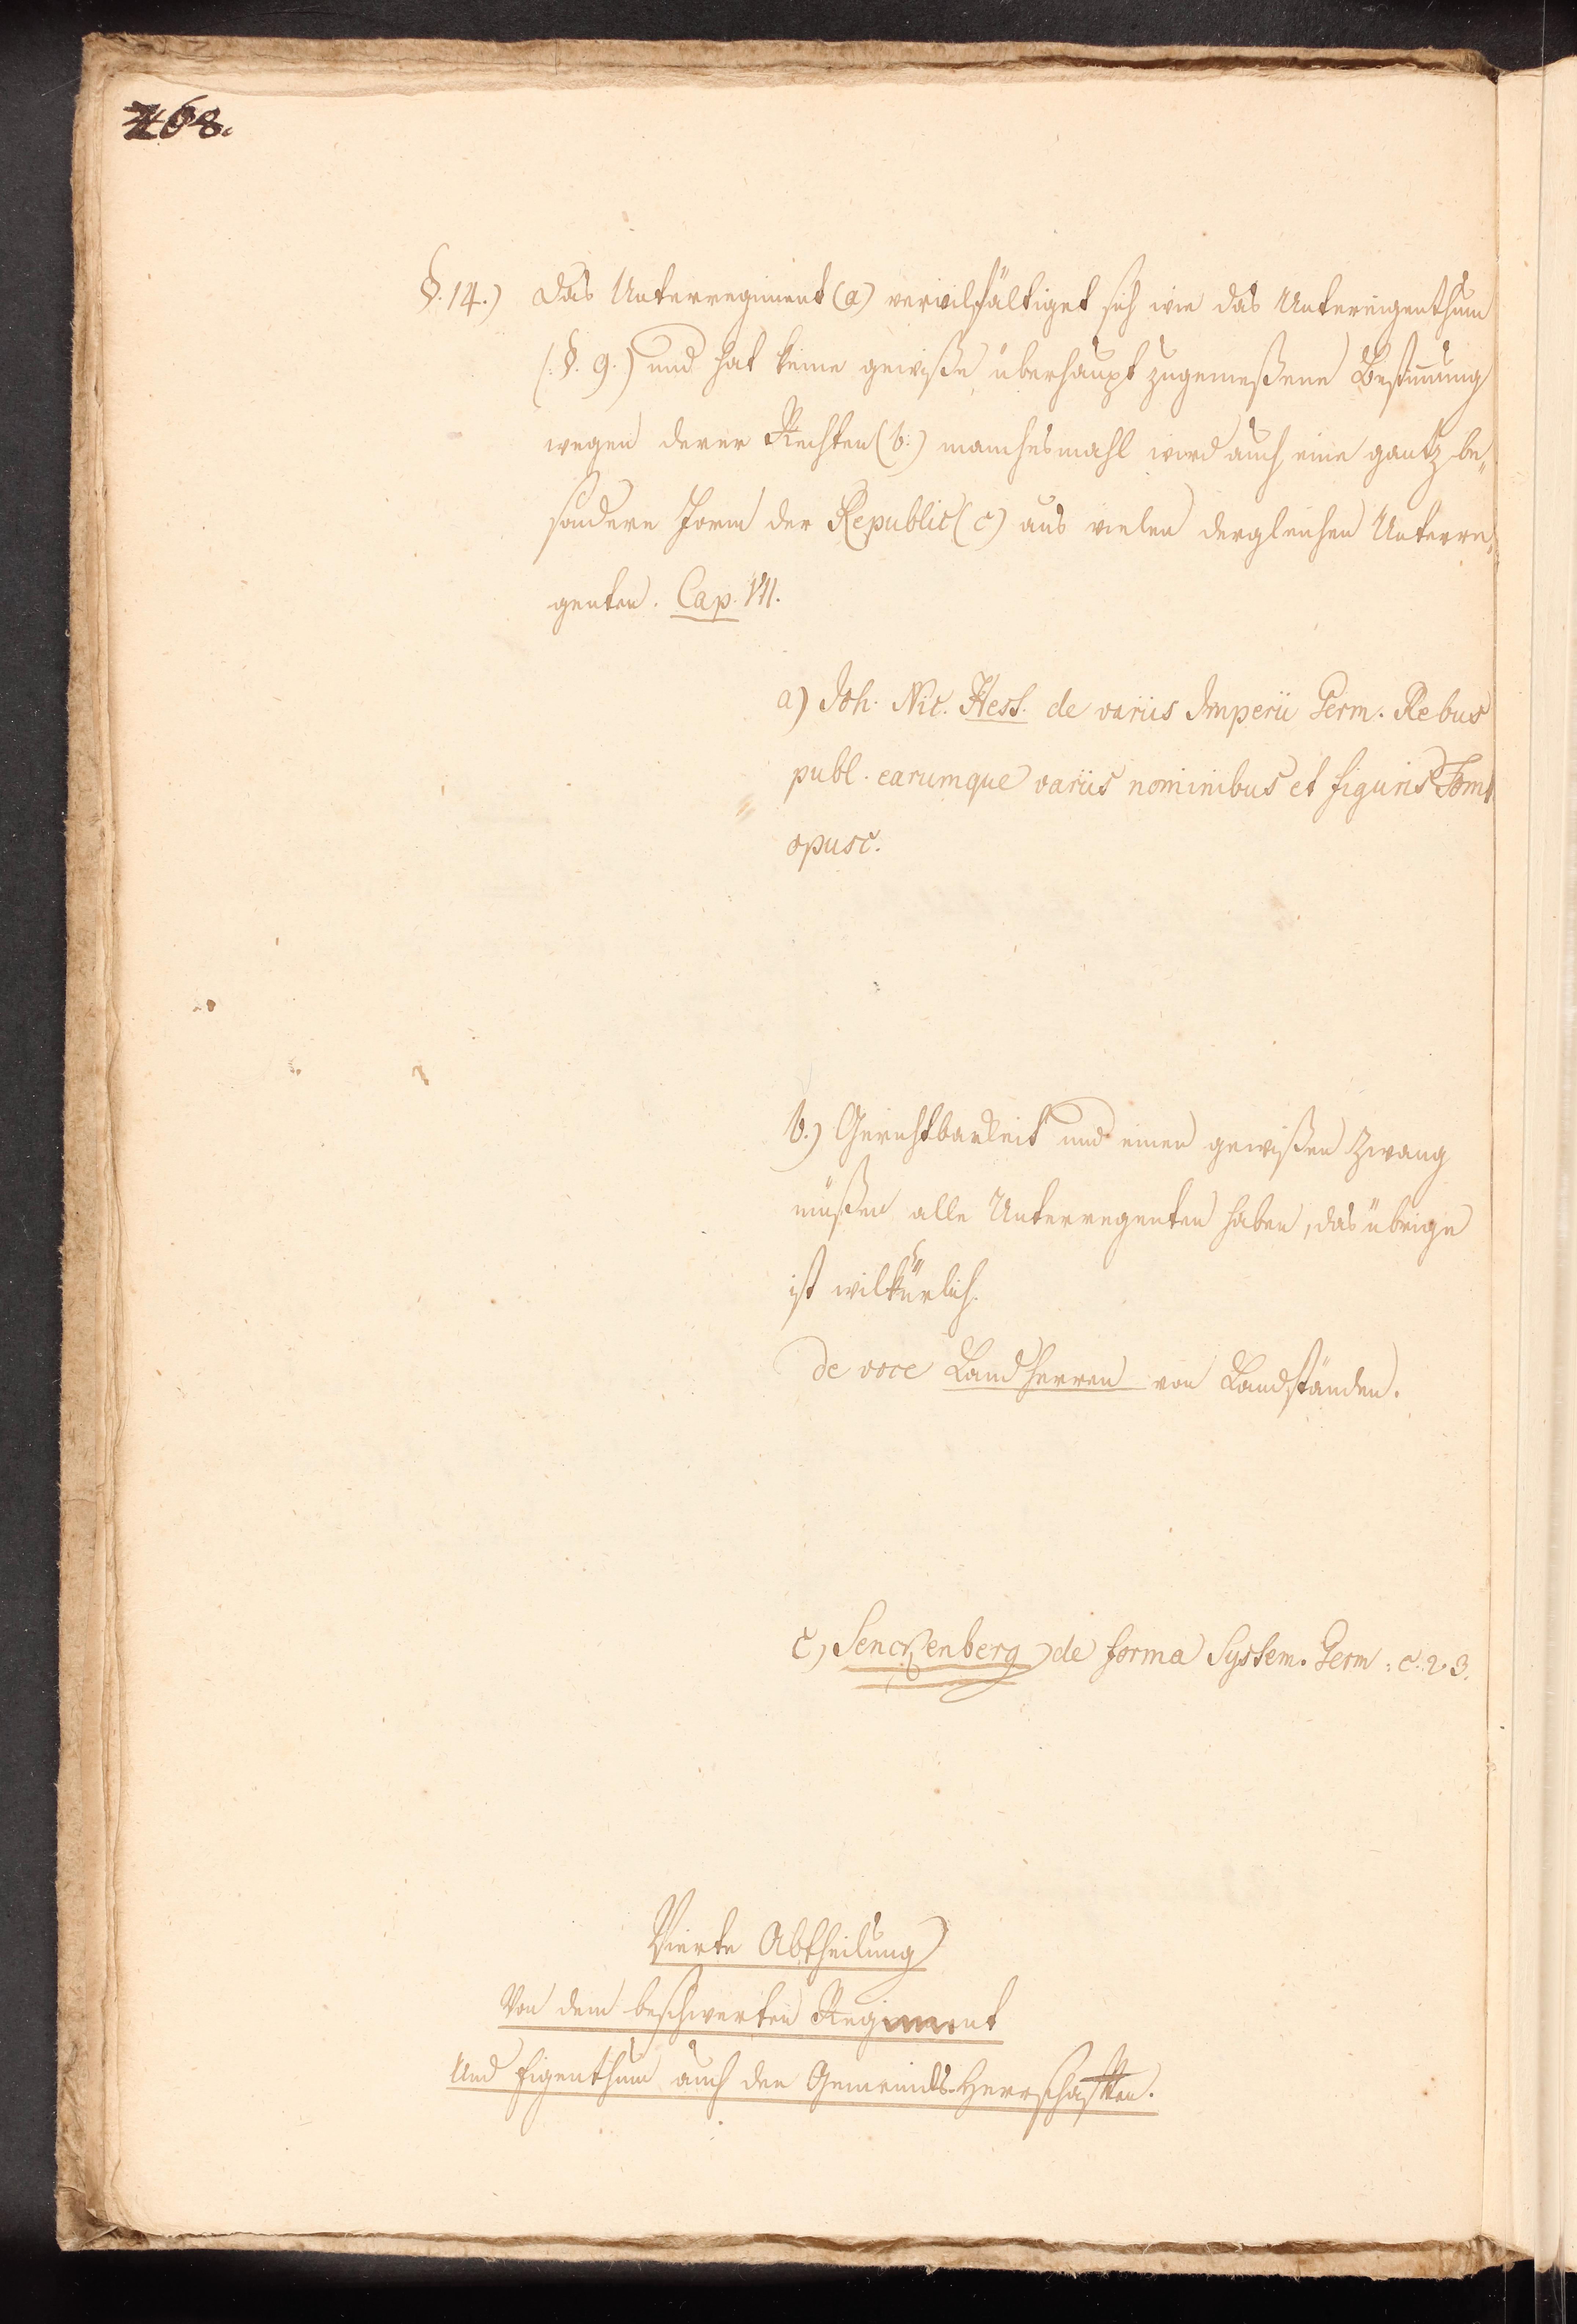 268.
§. 14.) Das Unterregiment (a) vervielfältiget sich wie das Untereigenthum
(: §. 9.) und hat keine gewiße überhaupt zugemeßene Bestimmung
wegen derer Rechten (b:) manchesmahl wird auch eine gantz be„
sondere Form der Republic (c) aus vielen dergleichen Unterre„
genten. Cap. VII.
a) Joh. Nic. Hert. de variis Imperii Germ. Rebus
publ. earumque variis nominibus et figuris Tom
opusc.
b.) Gerichtbarkeit und einen gewißen Zwang
müßen alle Unterregenten haben, das übrige
ist wilkürlich.
de voce Landherren von Landständen.
c) Senckenberg de forma System. Germ: c. 23.
Vierte Abtheilung
Von dem beschwerten Regiment
Und Eigenthum auch den Gemeinds-Herrschafften.